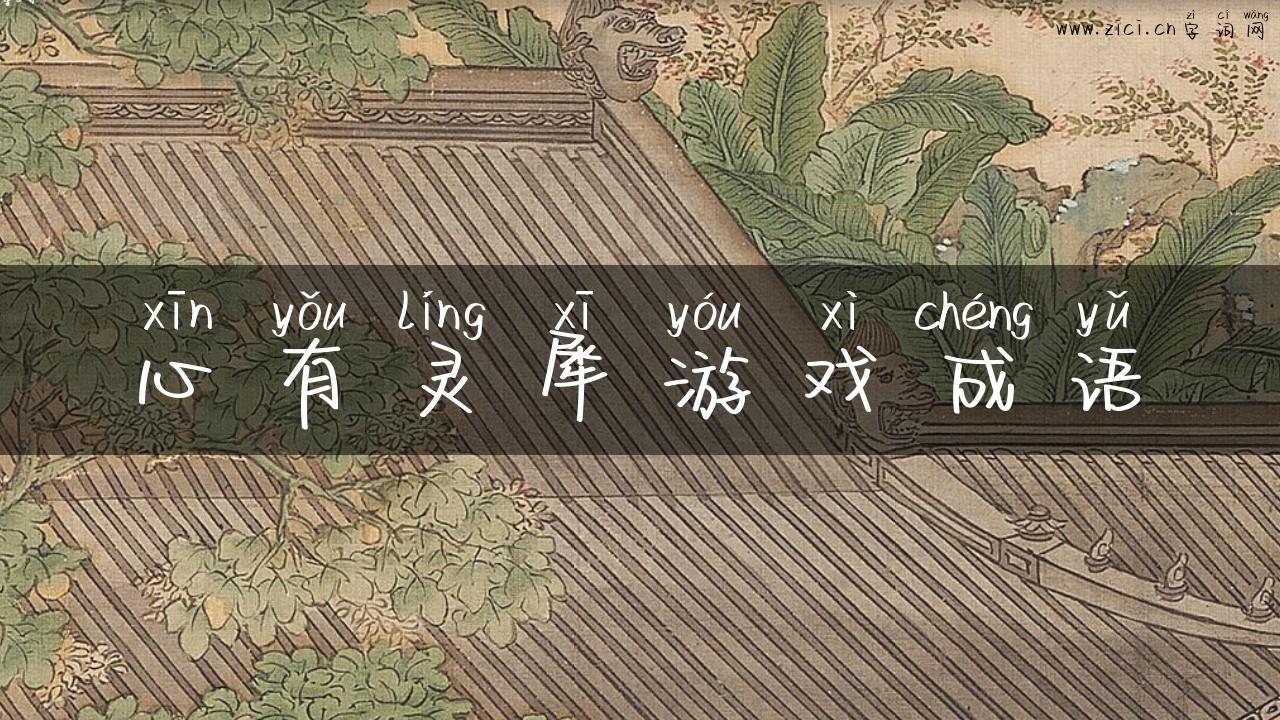 zì cí wǎng
www.zici.cn 字词网
xīn yǒu líng xī yóu xì chéng yǔ
心有灵犀游戏成语